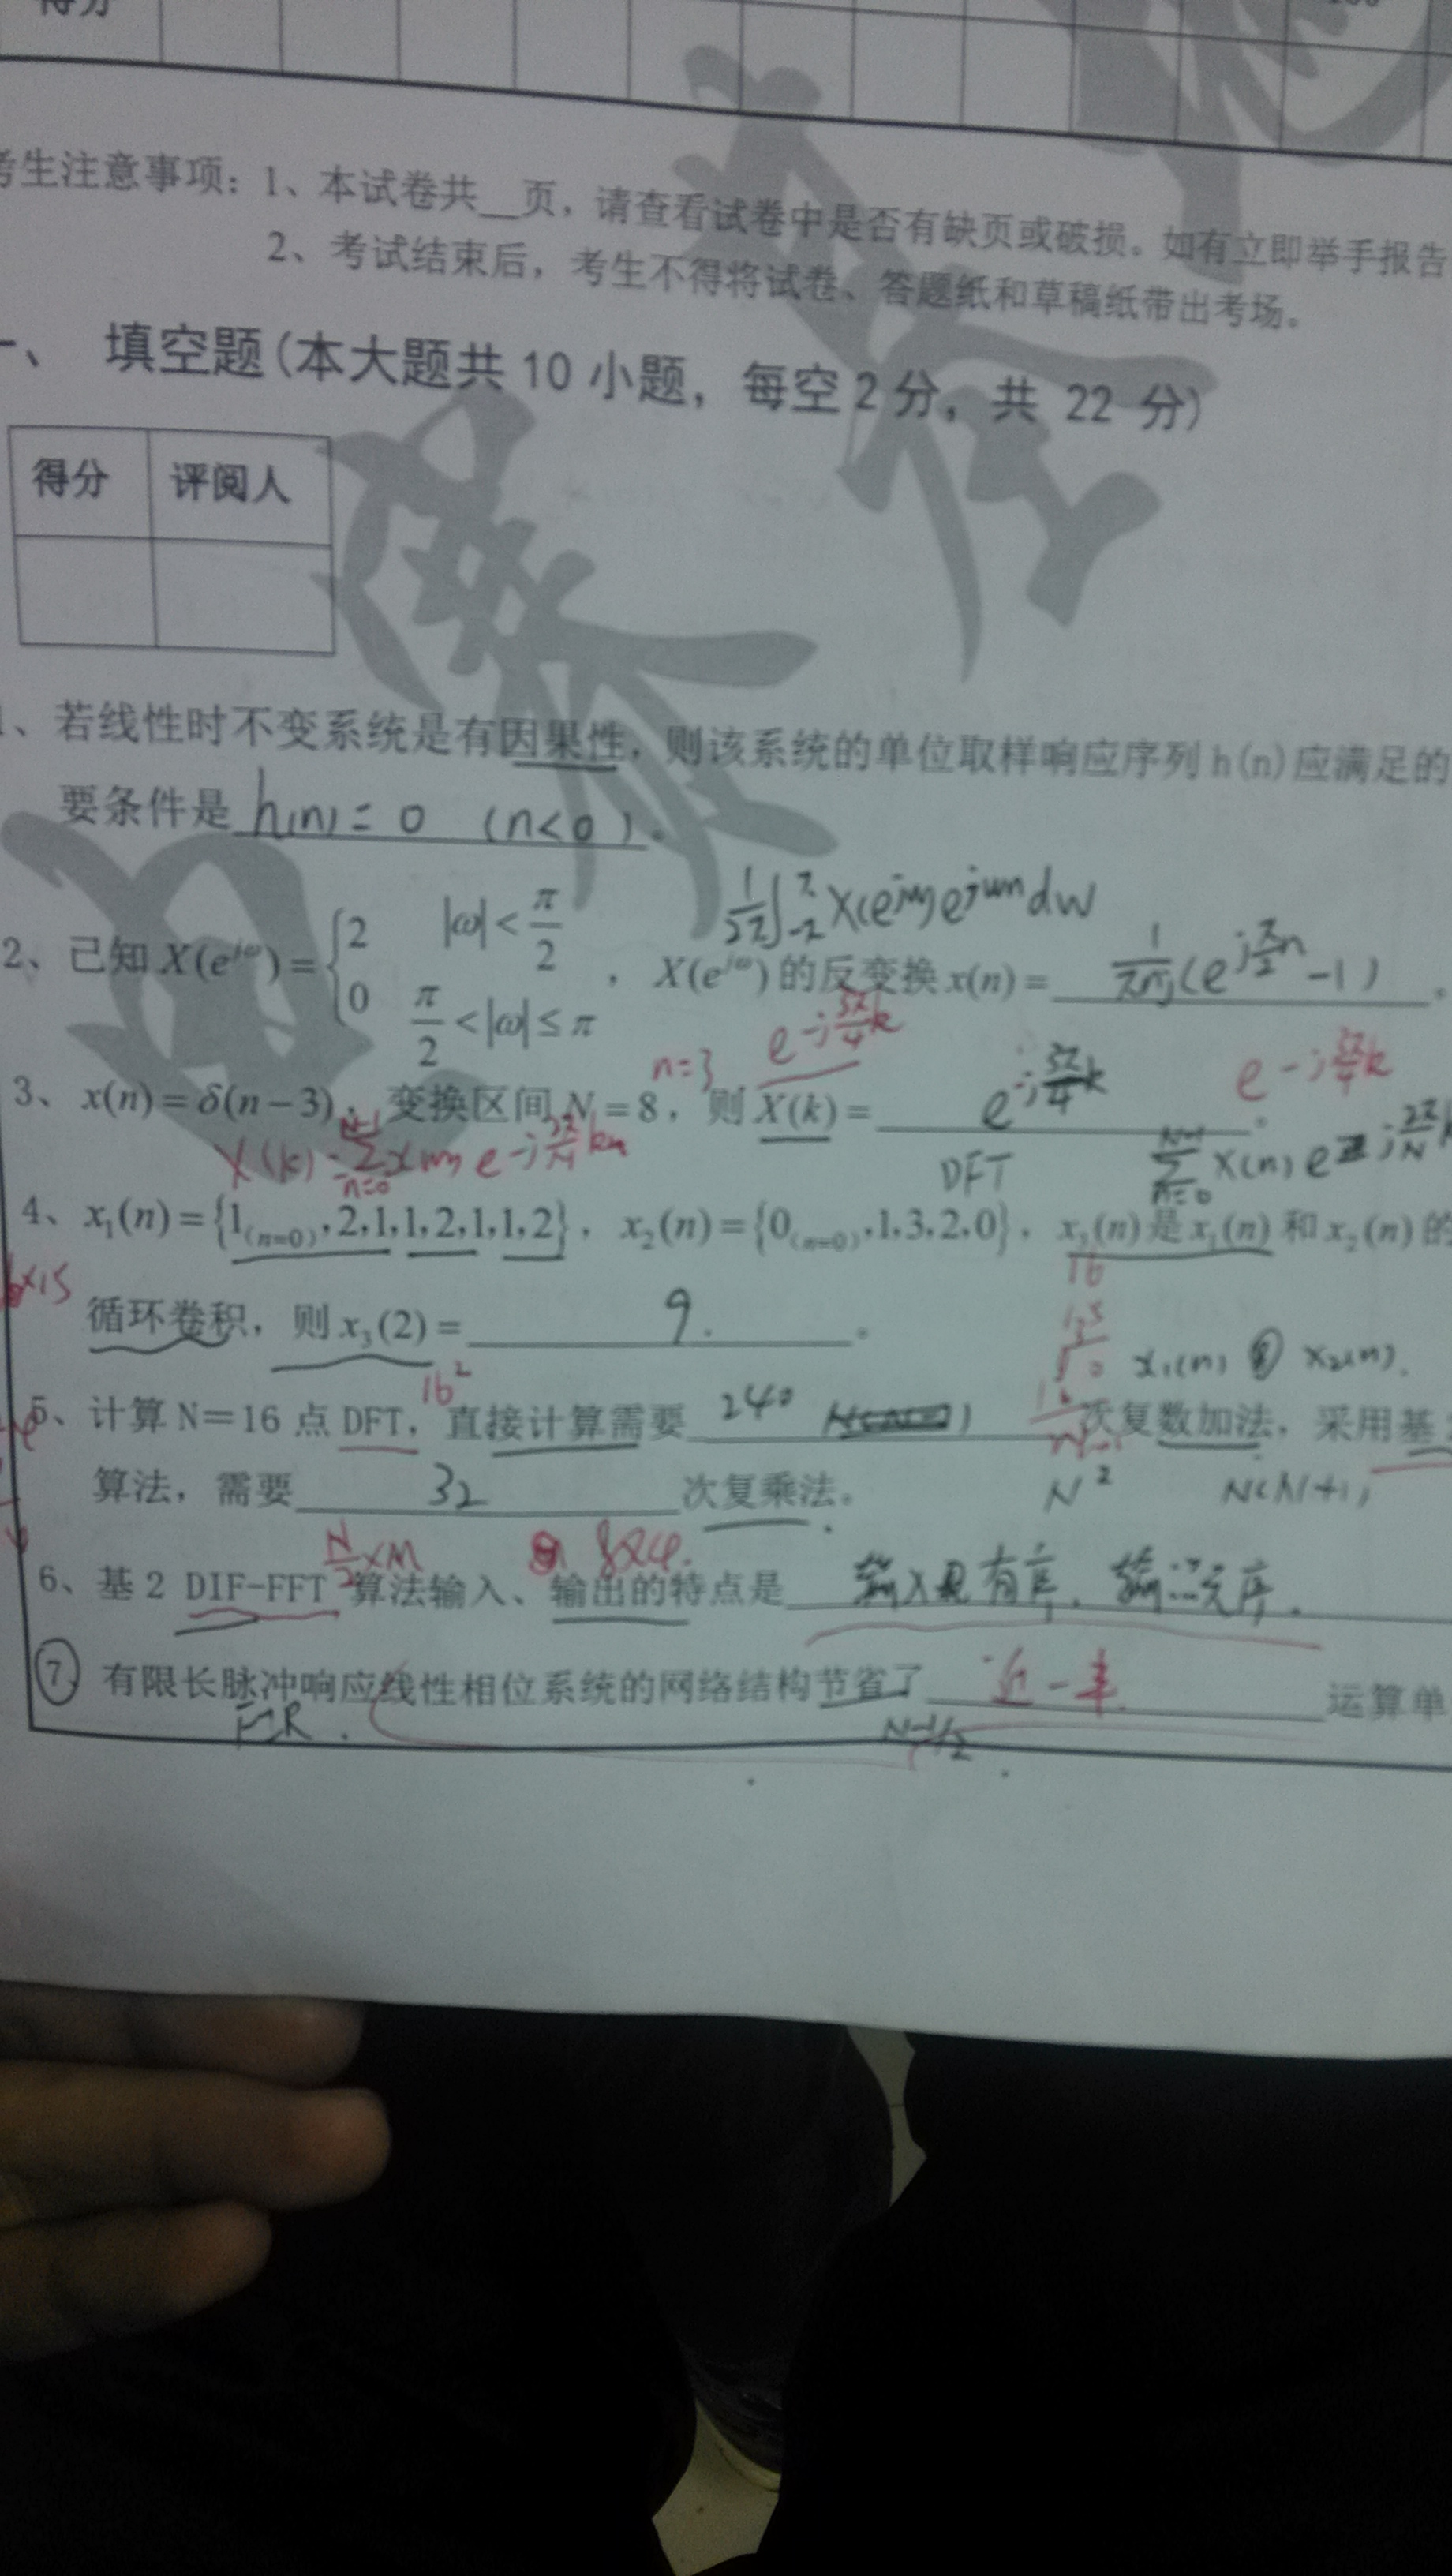 得分
考生注意事项：1、本试卷共__页，请查看试卷中是否有缺页或破损。如有立即举手报告
2、考试结束后，考生不得将试卷、答题纸和草稿纸带出考场。
一、 填空题(本大题共 10 小题，每空 2 分，共 22 分)
得分 评阅人
1、若线性时不变系统是有因果性，则该系统的单位取样响应序列 h(n)应满足的
要条件是 h(n) = 0 (n<0) 。
1/2π ∫_{-π}^{π} X(e^{jω})e^{jωn}dω
2、已知 X(e^{jω}) = { 2 |ω| < π/2 ; 0 π/2 < |ω| ≤ π ， X(e^{jω}) 的反变换 x(n) = 1/πnj (e^{jπ/2 n} -1) 。
n=3 e^{-j3π/4 k}
3、x(n) = δ(n−3)，变换区间 N = 8，则 X(k) = e^{-j3π/4 k} 。 e^{-j3π/4 k}
X(k) = Σ_{n=0}^{N-1} x(n) e^{-j2π/N kn} DFT Σ_{n=0}^{N-1} X(n) e^{-j2π/N
4、x₁(n) = {1_{(n=0)},2,1,1,2,1,1,2}，x₂(n) = {0_{(n=0)},1,3,2,0}，x₃(n) 是 x₁(n) 和 x₂(n) 的
循环卷积，则 x₃(2) = 9. 。
16² x₁(n) ⑧ x₂(n).
5、计算 N＝16 点 DFT，直接计算需要 240 次复数加法，采用基
算法，需要 32 次复乘法。 N² N(N+1)
N/2 ×M 8×4.
6、基 2 DIF-FFT 算法输入、输出的特点是 输入是有序，输出无序.
⑦ 有限长脉冲响应线性相位系统的网络结构节省了 近一半 运算单
FIR. N-1/2